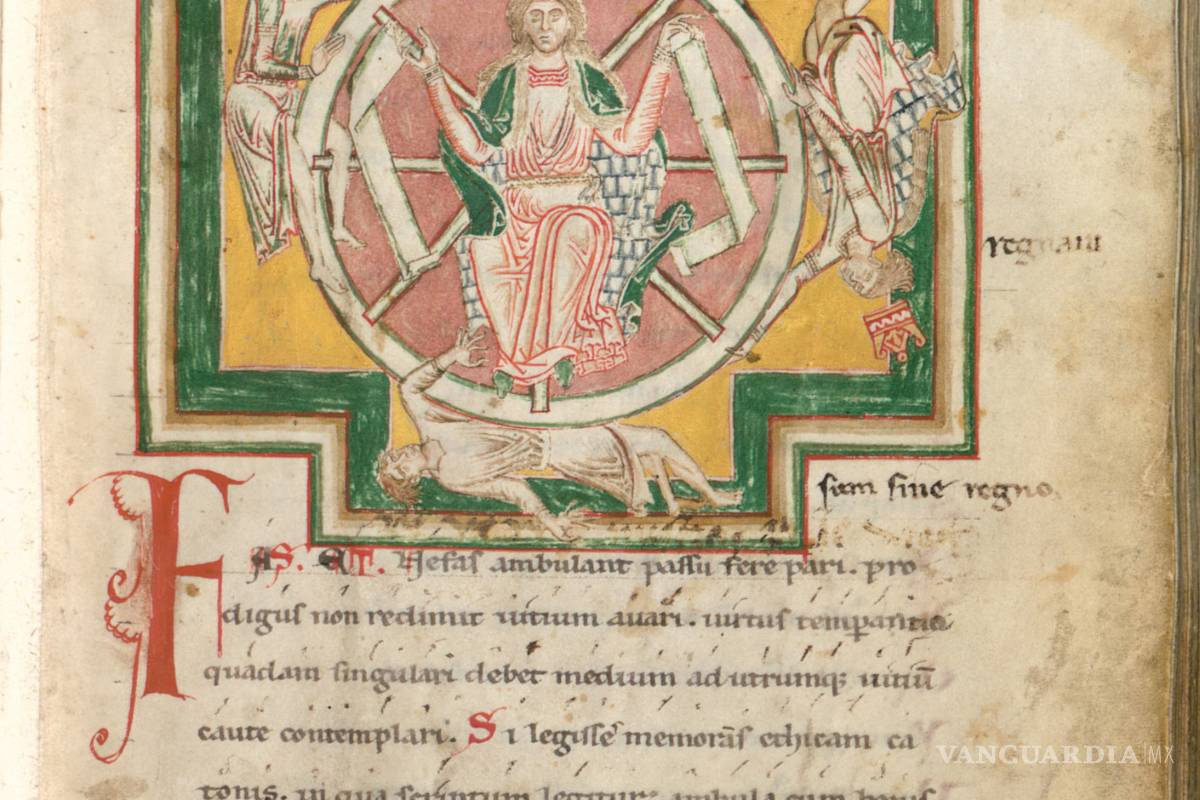 regnaui
sum sine regno,
FAS. ET. Nefas ambulant passu fere pari. pro
digus non redimit uitium auari. uirtus temperantia
quadam singulari debet medium ad utrumq; uitiū
caute contemplari. Si legisse memorās ethicam ca
tonis. in qua scriptum legitur ambula cum bonis
VANGUARDIA|MX